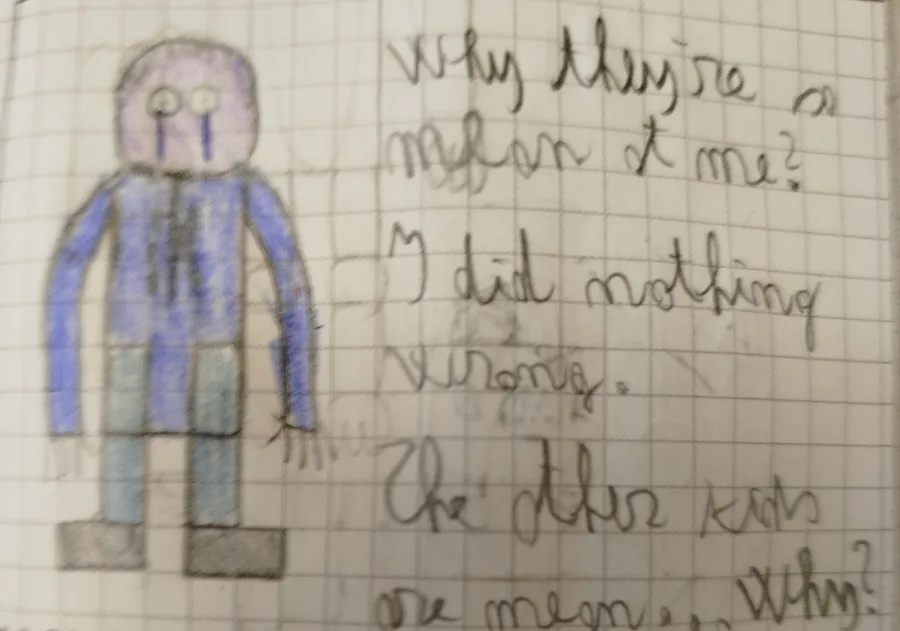 Why they're so
mean at me?
I did nothing
wrong.
The other kids
are mean... Why?